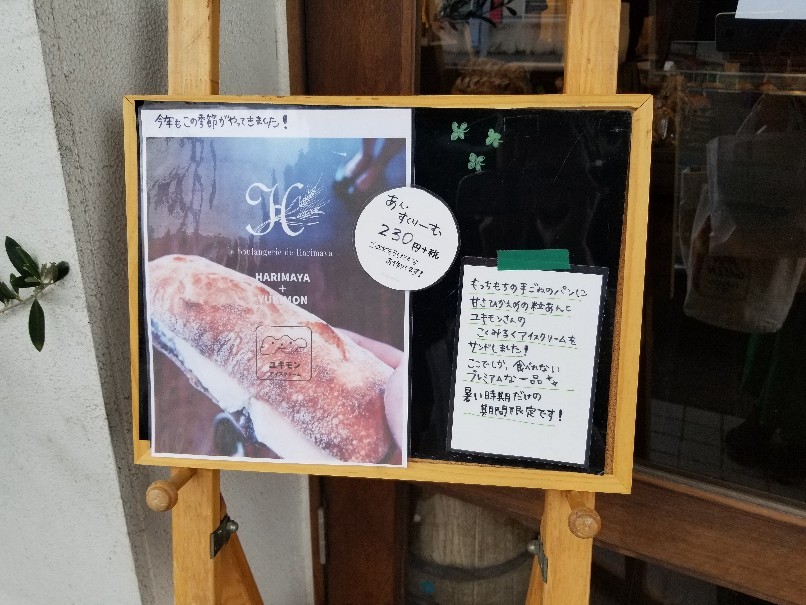 今年もこの季節がやってきました!
H
la boulangerie de Harimaya
HARIMAYA
+
YUKIMON
ユキモン
アイスクリーム
あん
すくりーむ
230円+税
もっちもちの手ごねのパンに
甘さひかえめの粒あんと
ユキモンさんの
ごくみるくアイスクリームを
サンドしました!
ここでしか、食べれない
プレミアムな一品
暑い時期だけの
期間限定です!